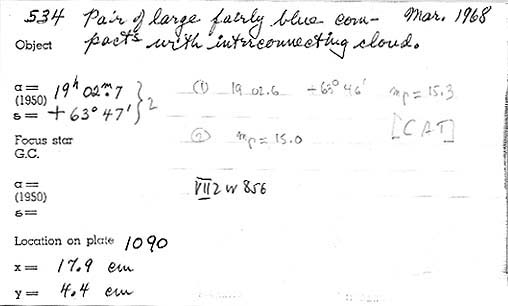 534 Pair of large fairly blue com- Mar. 1968
Object pacts with interconnecting cloud.
α = 19h 02m.7 } 2 (1) 19 02.6 +63° 46' mp = 15.3
(1950)
δ = + 63° 47' [CAT]
Focus star (2) mp = 15.0
G.C.
α = VII Zw 856
(1950)
δ =
Location on plate 1090
x = 17.9 cm
y = 4.4 cm